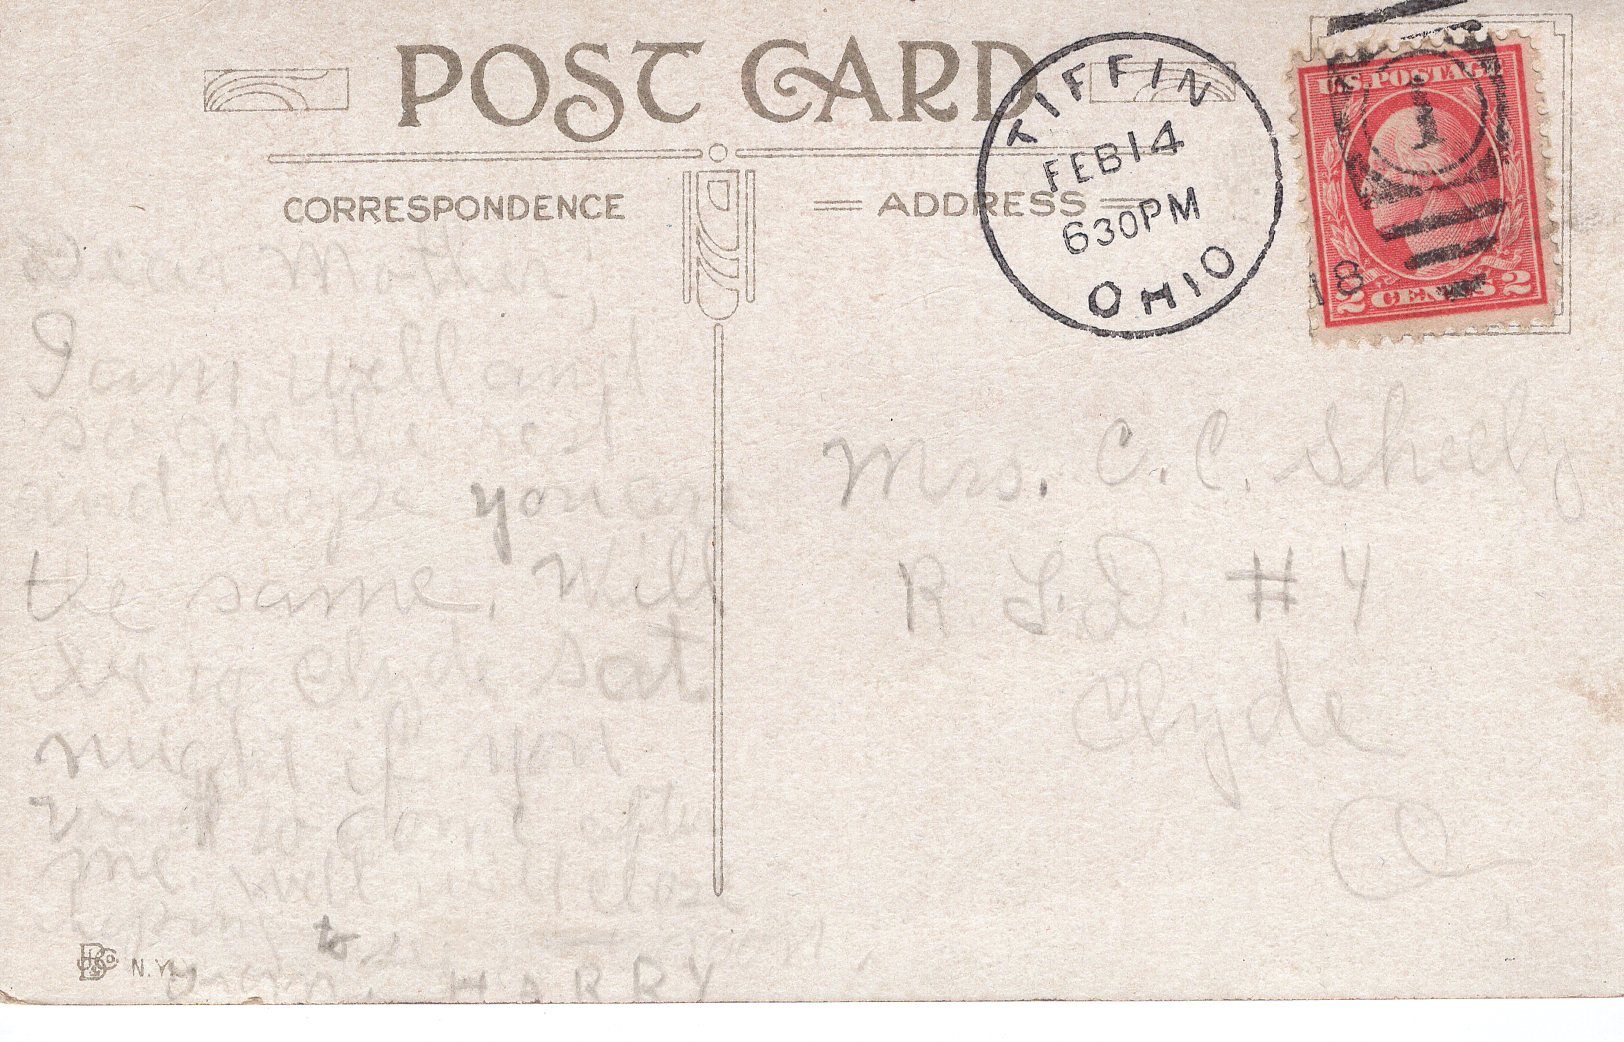 POST CARD
CORRESPONDENCE
ADDRESS
TIFFIN
FEB 14
630PM
OHIO
18
1
U.S. POSTAGE
2 CENTS 2
Dear Mother,
I am well and
so are the rest
and hope you are
the same. Will
be to Clyde Sat
night if you
want to come after
me. Well will close
hoping to see
from, HARRY
N.Y.
Mrs. C. C. Sheely
R. F. D. #4
Clyde
O